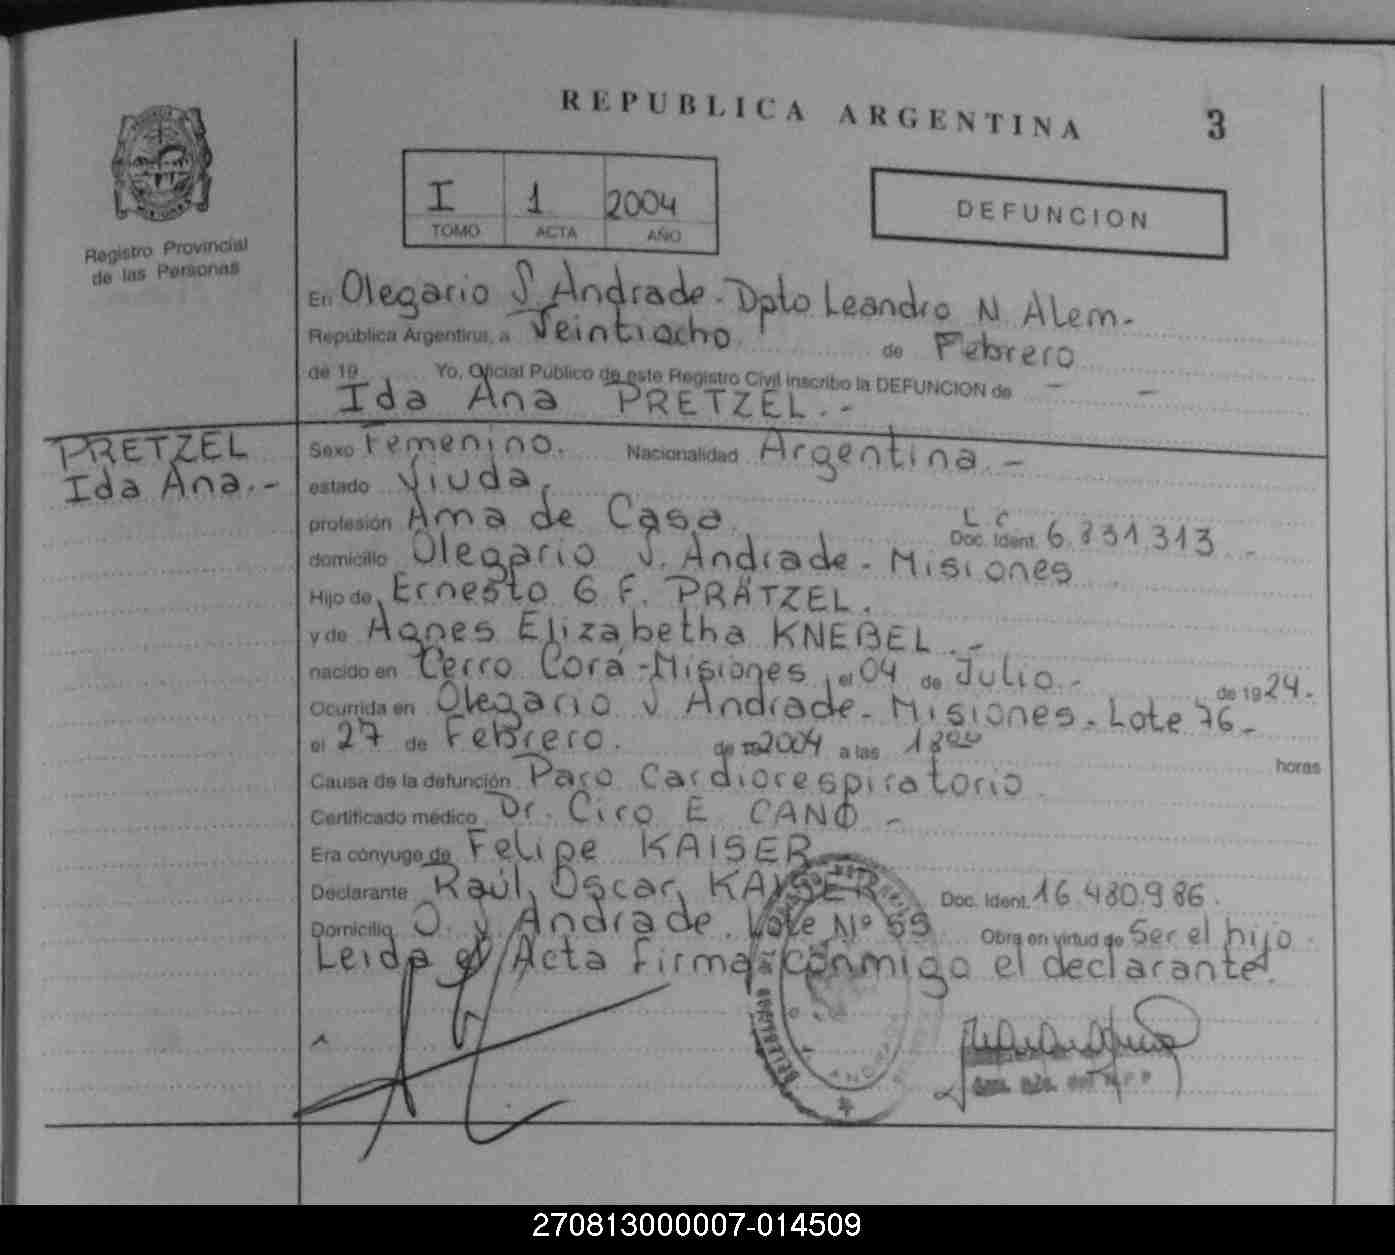 REPUBLICA ARGENTINA 3
Registro Provincial
de las Personas
I 1 2004
TOMO ACTA AÑO
DEFUNCION
En Olegario V Andrade - Dpto Leandro N. Alem.-
República Argentina, a Veintiocho de Febrero
de 19 Yo, Oficial Público de este Registro Civil inscribo la DEFUNCION de - -
Ida Ana PRETZEL.-
PRETZEL
Ida Ana.-
Sexo Femenino. Nacionalidad Argentina.-
estado Viuda.
profesión Ama de Casa L C Doc. Ident. 6.831.313 -
domicilio Olegario V. Andrade - Misiones
Hijo de Ernesto G F. PRÄTZEL.
y de Agnes Elizabetha KNEBEL.-
nacido en Cerro Corá - Misiones, el 04 de Julio.- de 1924.-
Ocurrida en Olegario V Andrade - Misiones - Lote 76 -
el 27 de Febrero. de 2004 a las 18ºº horas
Causa de la defunción Paro Cardiorespiratorio
Certificado médico Dr. Ciro E CANO -
Era cónyuge de Felipe KAISER
Declarante Raúl Oscar KAISER Doc. Ident. 16.480.986.
Domicilio O. V. Andrade. Lote Nº 59 Obra en virtud de Ser el hijo.
Leida el Acta Firma conmigo el declarante.
270813000007-014509